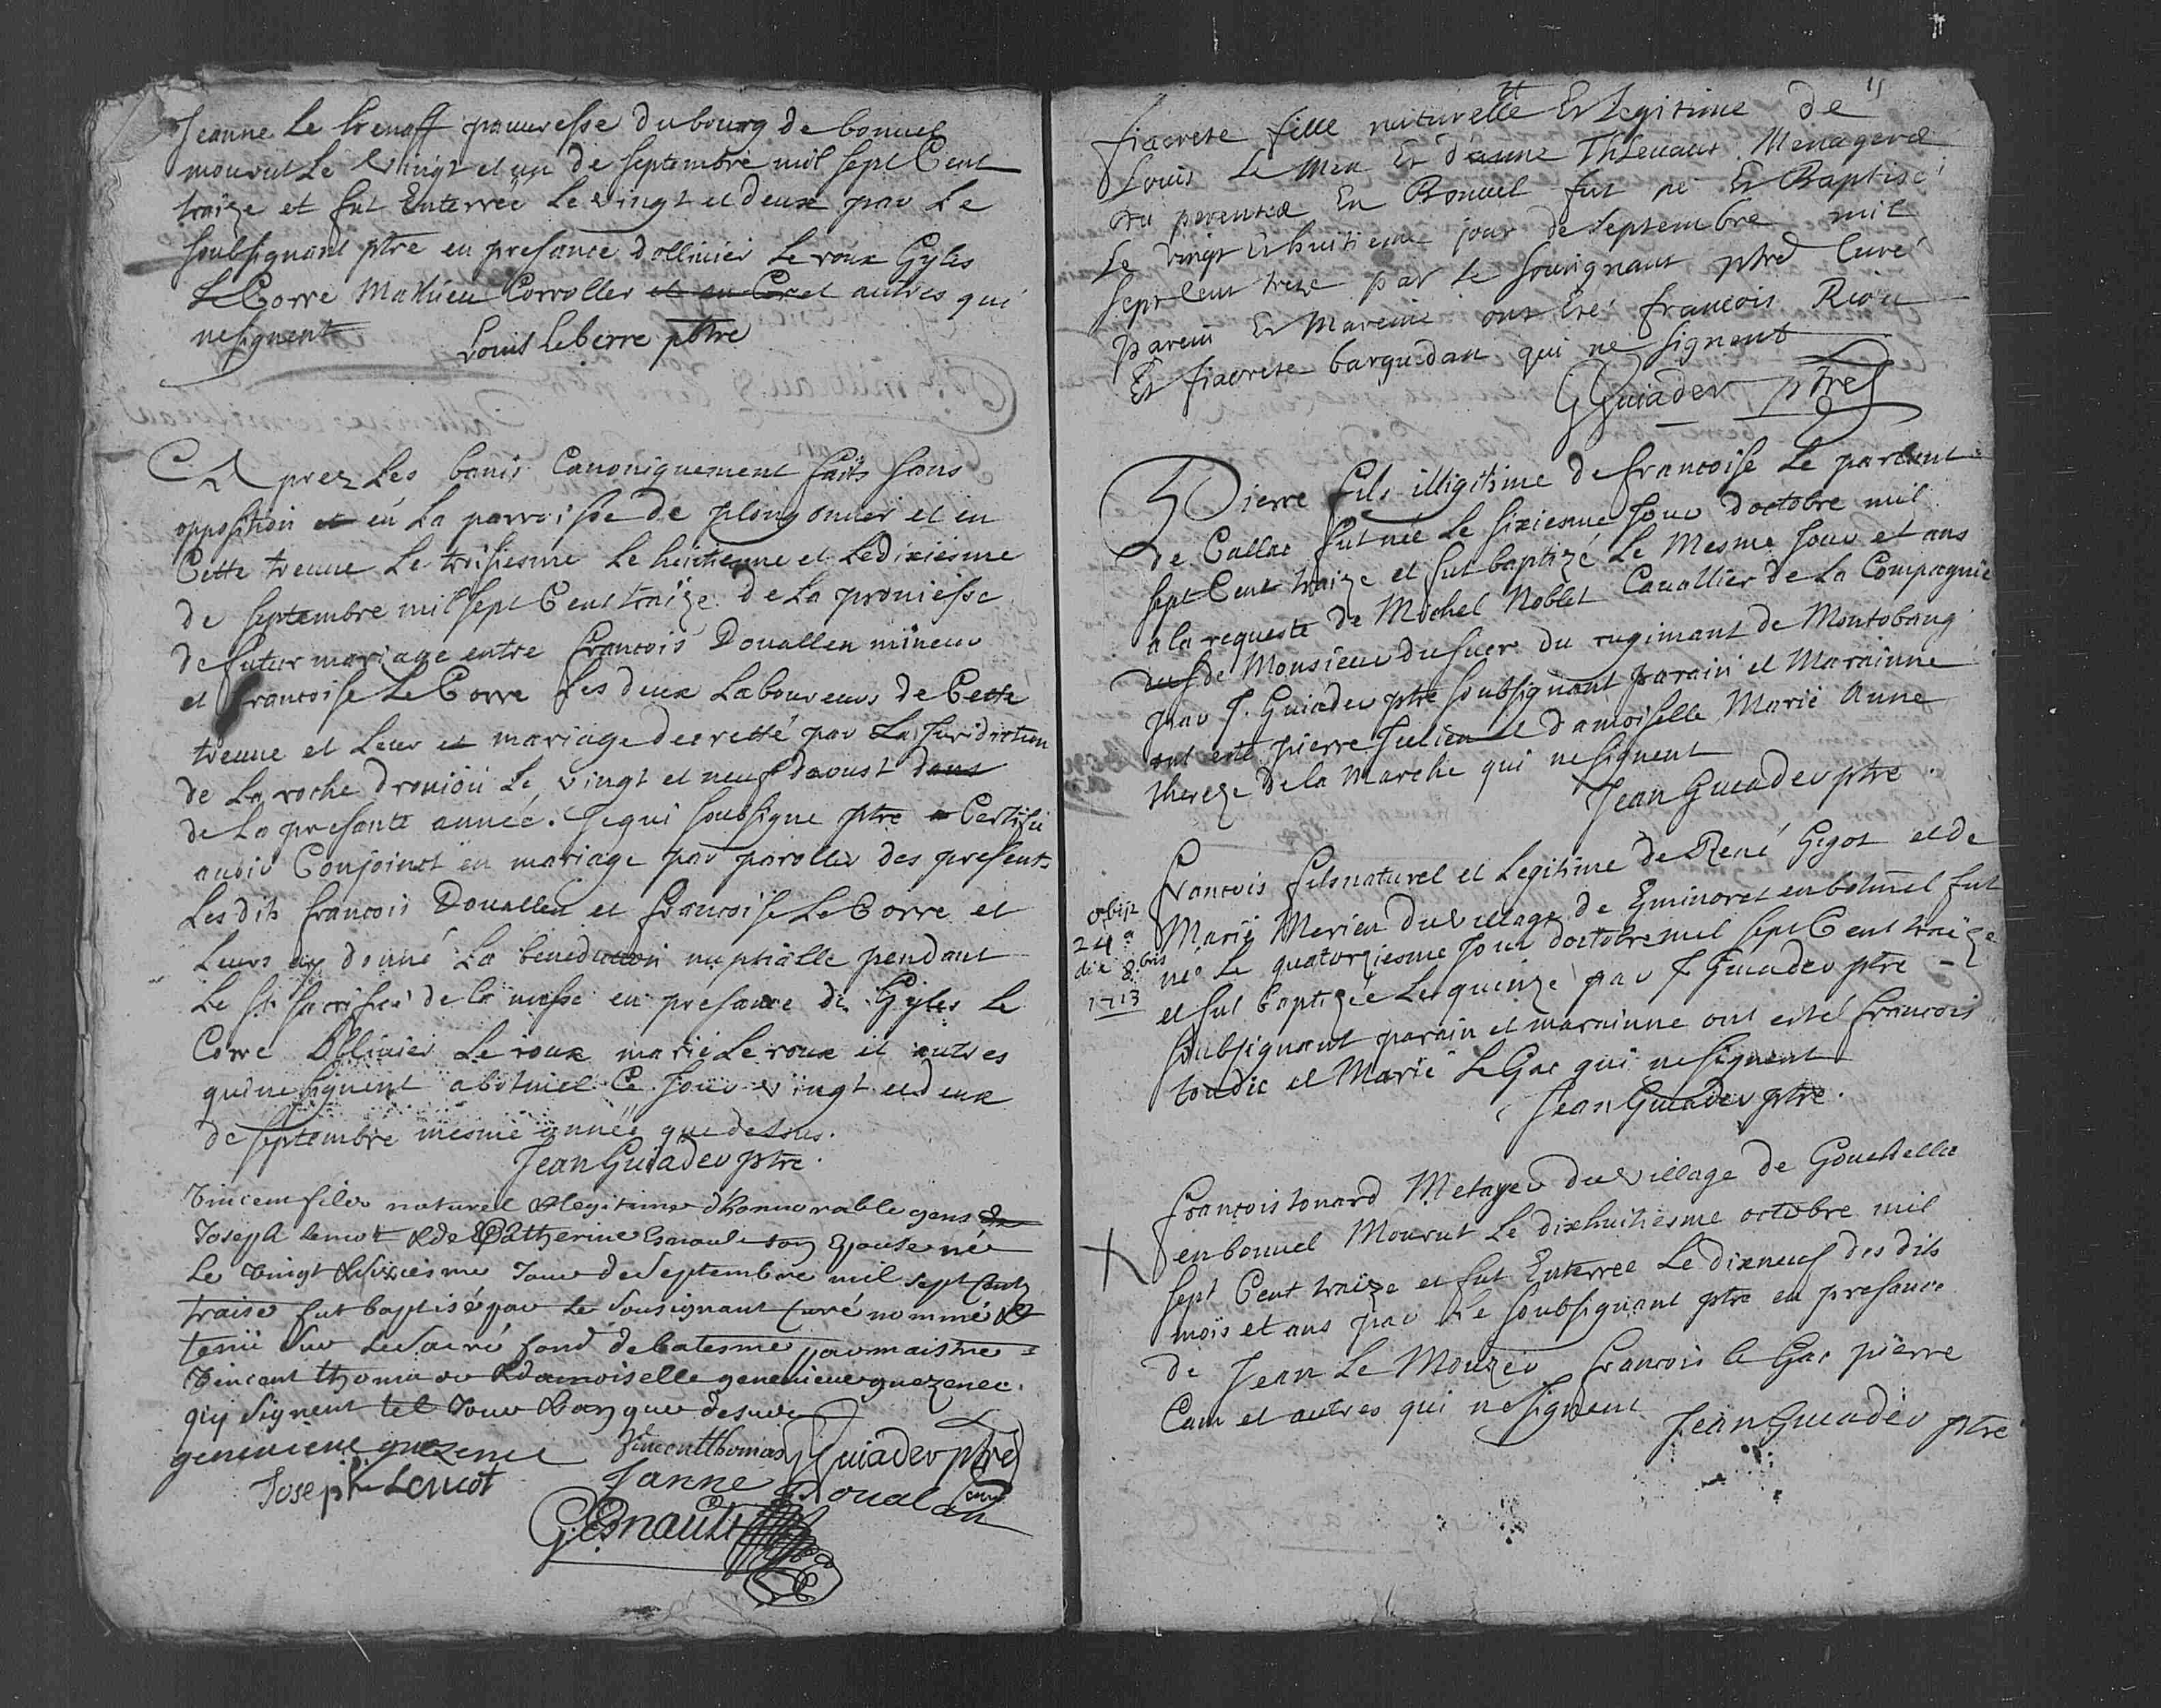 Jeanne Le pauuresse du bourg de bonuel
mourut Le Vingt et un de septembre mil sept Cent
traize et fut Enterreé Le vingt et deux par Le
soubsignant ptre en presance d'ollivier Le roux Gyles
Le Corre Mathieu Corroller et autres qui
ne signent
Louis Leberre ptre
Aprez Les banis Canoniquement faits sans
opposition et en La parroisse de plougonuer et en
Cette treuue Le troisiesme Le heitiesme et Le dixiesme
de septembre mil sept Cent traize de La promesse
de futur mariage entre francois Douallen mineur
et francoise Le Corre Les deux Laboureurs de Cette
treuue et Leur et mariage decretté par La Juridiction
de La roche droniou Le vingt et neuf daoust dans
de La presante année. Je qui soubsigne ptre Certifie
auoir Conjoinct en mariage par parolles des presents
Les dits francois Douallen et francoise Le Corre et
Leurs ay donné La benediction nuptialle pendant
Le st sacrifice de la messe en presance de Gyles Le
Corre Ollivier Le roux marie Le roux et autres
qui ne signent a botmel Ce Jour vingt et deux
de septembre mesme année que dessus.
Jean Guiader ptre.
Vincent fils naturel & legitime d'honnorable gens de
Joseph Lenot & de Catherine Esnault son Epouse né
Le vingt & sixiesme Jour de Septembre mil sept Cent
traise fut baptisé par Le Sousignant Curé nommé &
tenü Sur Le Sacré fond de batesme par maistre
Vincent thomas & damoiselle geneuieue guezenec.
qui signent tel Jour & an que desur
geneuieue guezenec Vincent thomas GGuiader ptre
Joseph Lenot Janne Doualan curé
G: Esnault
11
fiacrete fille naturelle Et Legitime de
Louis Le Men Et d'anne Thlenaur Menagere
du Bonuel fut né Et Baptisé
Le vingt et huitieme jour de septembre mil
sept Cent treze par Le sousignant ptre Curé
parein Et Mareine ont Eté francois Riou
Et fiacrete barguedan qui ne signent
GGuiader ptre
Pierre fils illigitime de francoise Le parlent
de Callac fut néé Le sixiesme Jour doctobre mil
sept Cent traize et fut baptizé Le Mesme Jour et ans
a la requeste de Michel Noblet Cauallier de La Compagnie
de Monsieur du regimant de Montobang
par J. Guiader ptre soubsignant parain et Marainne
ont esté pierre Jullien et damoiselle Marie Anne
thereze de La Marche qui ne signent
Jean Guiader ptre.
obiit
24a
die 8bris
1713
francois fils naturel et Legitime de René Gigot et de
Marie Merien du Village de Gminoret en botmel fut
né Le quatorziesme Jour doctobre mil sept Cent traize
et fut baptizée Les quinze par J Guiader ptre
soubsignant parain et marainne ont esté francois
toudic et Marie Le Gac qui ne signent
Jean Guiader ptre.
francois touard Metayer du Village de Gouellelle
en bonuel Mourut Le dixhuitiesme octobre mil
sept Cent traize et fut Enterree Le dixneuf des dits
mois et ans par Le soubsignant ptre en presance
de Jean Le Mouzer francois Le Gac pierre
Cam et autres qui ne signent
Jean Guiader ptre